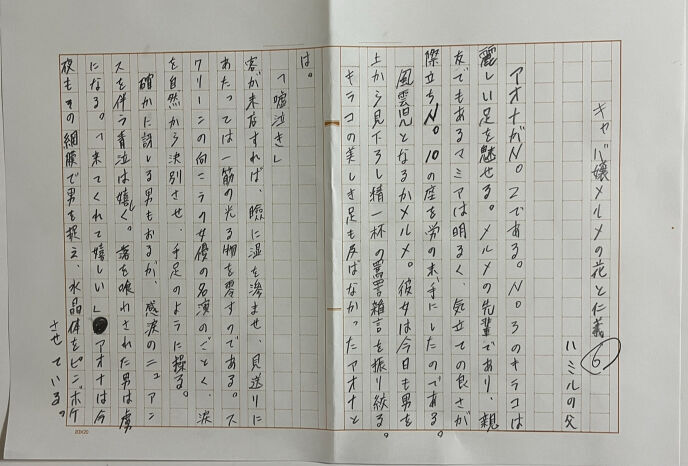 キャバ嬢メルメの花と仁義 ⑥
ハミルの父
アオナがN.2である。N.3のキラコは
麗しい足を魅せる。メルメの先輩であり、親
友でもあるマミアは明るく、気立ての良さが
際立ちN.10の座を労のま、手にしたのである。
風雲児となるかメルメ。彼女は今日も男を
上から見下ろし精一杯の罵詈雑言を振り絞る。
キラコの美しき足も及ばなかったアオナと
は。
「嘘泣き」
客が来店すれば、瞼に湿を滲ませ、見送りに
あたっては一筋の光る物を零すのである。ス
クリーンの向こうの女優の名演のごとく、涙
を自然から決別させ、手足のように操る。
確かに訝しる男もおるが、感涙のニュアン
スを伴う青泣は嬉しく。落を喰れされた男は虜
になる。「来てくれて嬉しい」アオナは今
夜もその網膜で男を捉え、水晶体をピンボケ
させている。
20×20